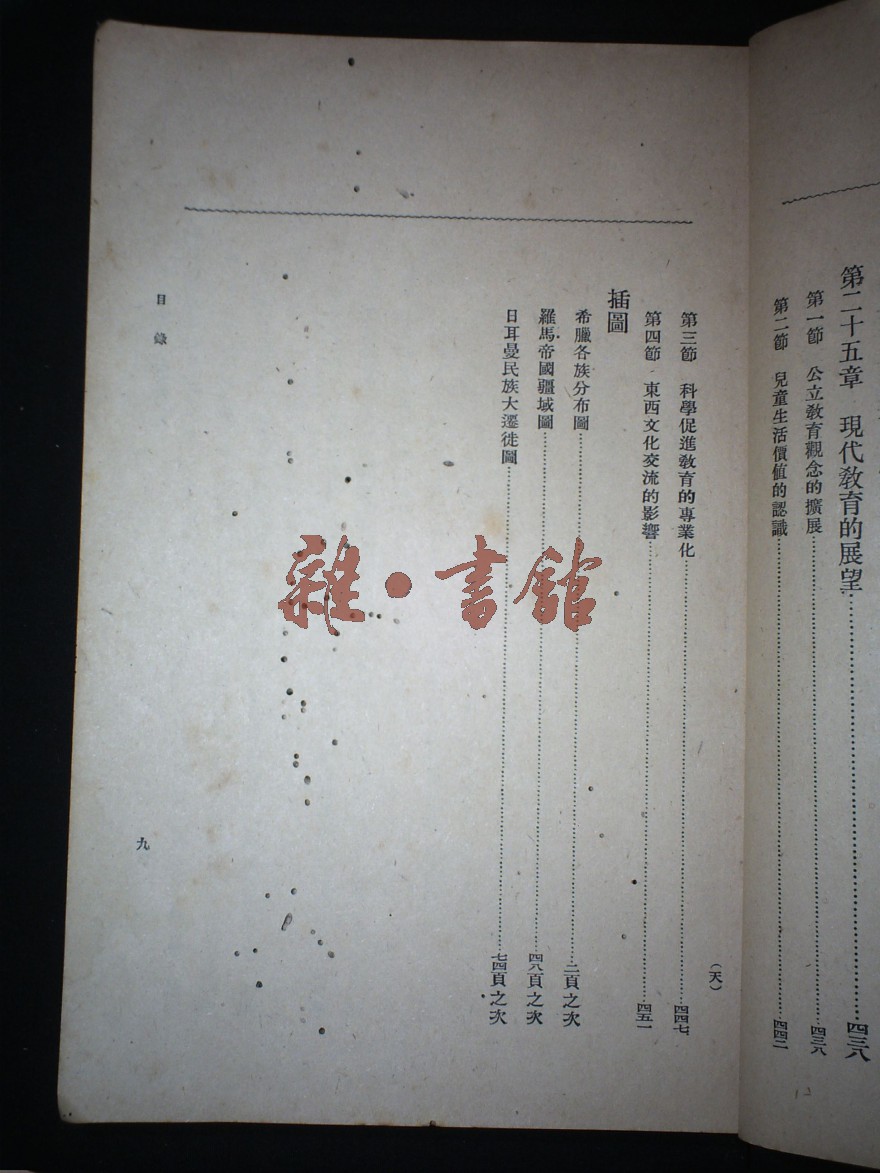 第二十五章 現代教育的展望……四三八
第一節 公立教育觀念的擴展……四三八
第二節 兒童生活價值的認識……四四二
(天)
第三節 科學促進教育的專業化……四四七
第四節 東西文化交流的影響……四五一
插圖
希臘各族分布圖……二頁之次
羅馬帝國疆域圖……四八頁之次
日耳曼民族大遷徙圖……七四頁之次
目錄
九
雜·書館